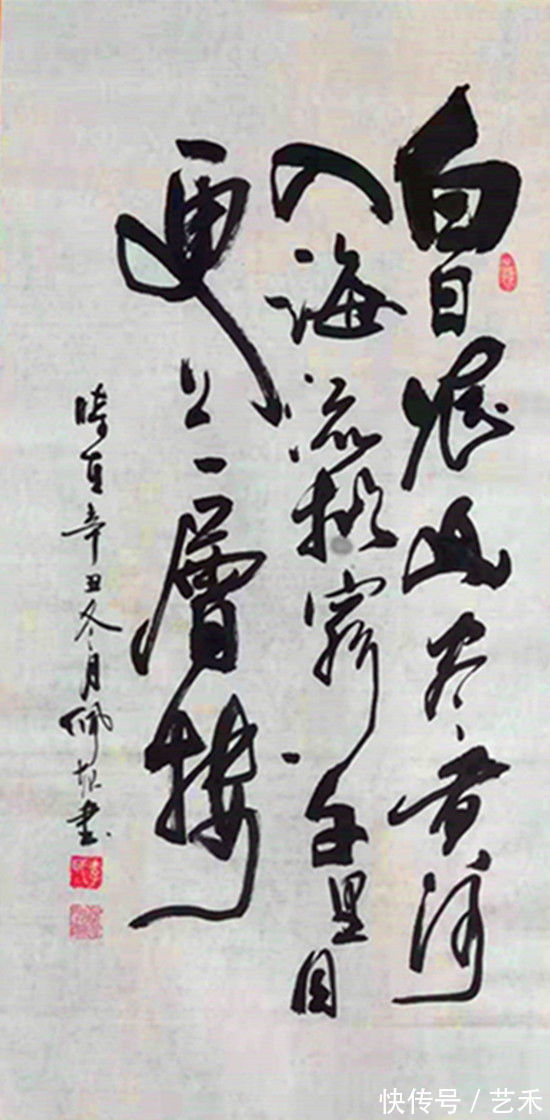 白日依山尽黄河
入海流欲穷千里目
更上一层楼
时在辛丑冬月佩怀书
快传号/艺禾